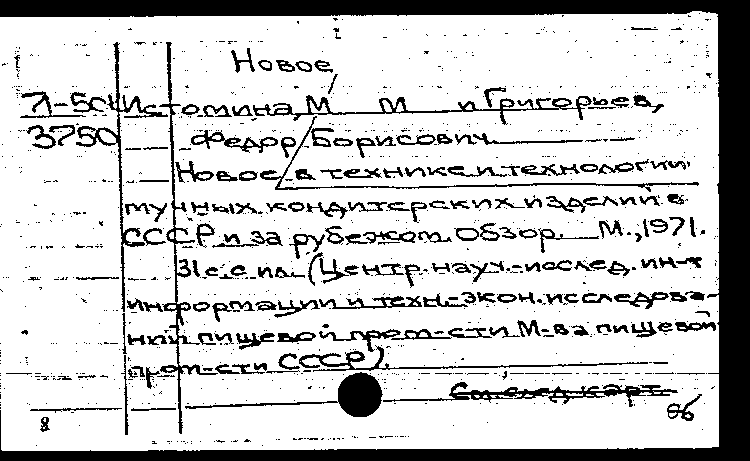 Новое
Л-504 Истомина, М М и Григорьев,
3750 Федор Борисович.
Новое в технике и технологии
мучных кондитерских изделий в
СССР и за рубежом. Обзор. М., 1971.
31 с. с ил. (Центр. науч.-исслед. ин-т
информации и техн.-экон. исследова-
ний пищевой пром-сти М-ва пищевой
пром-сти СССР).
См. след. карт.
8 86